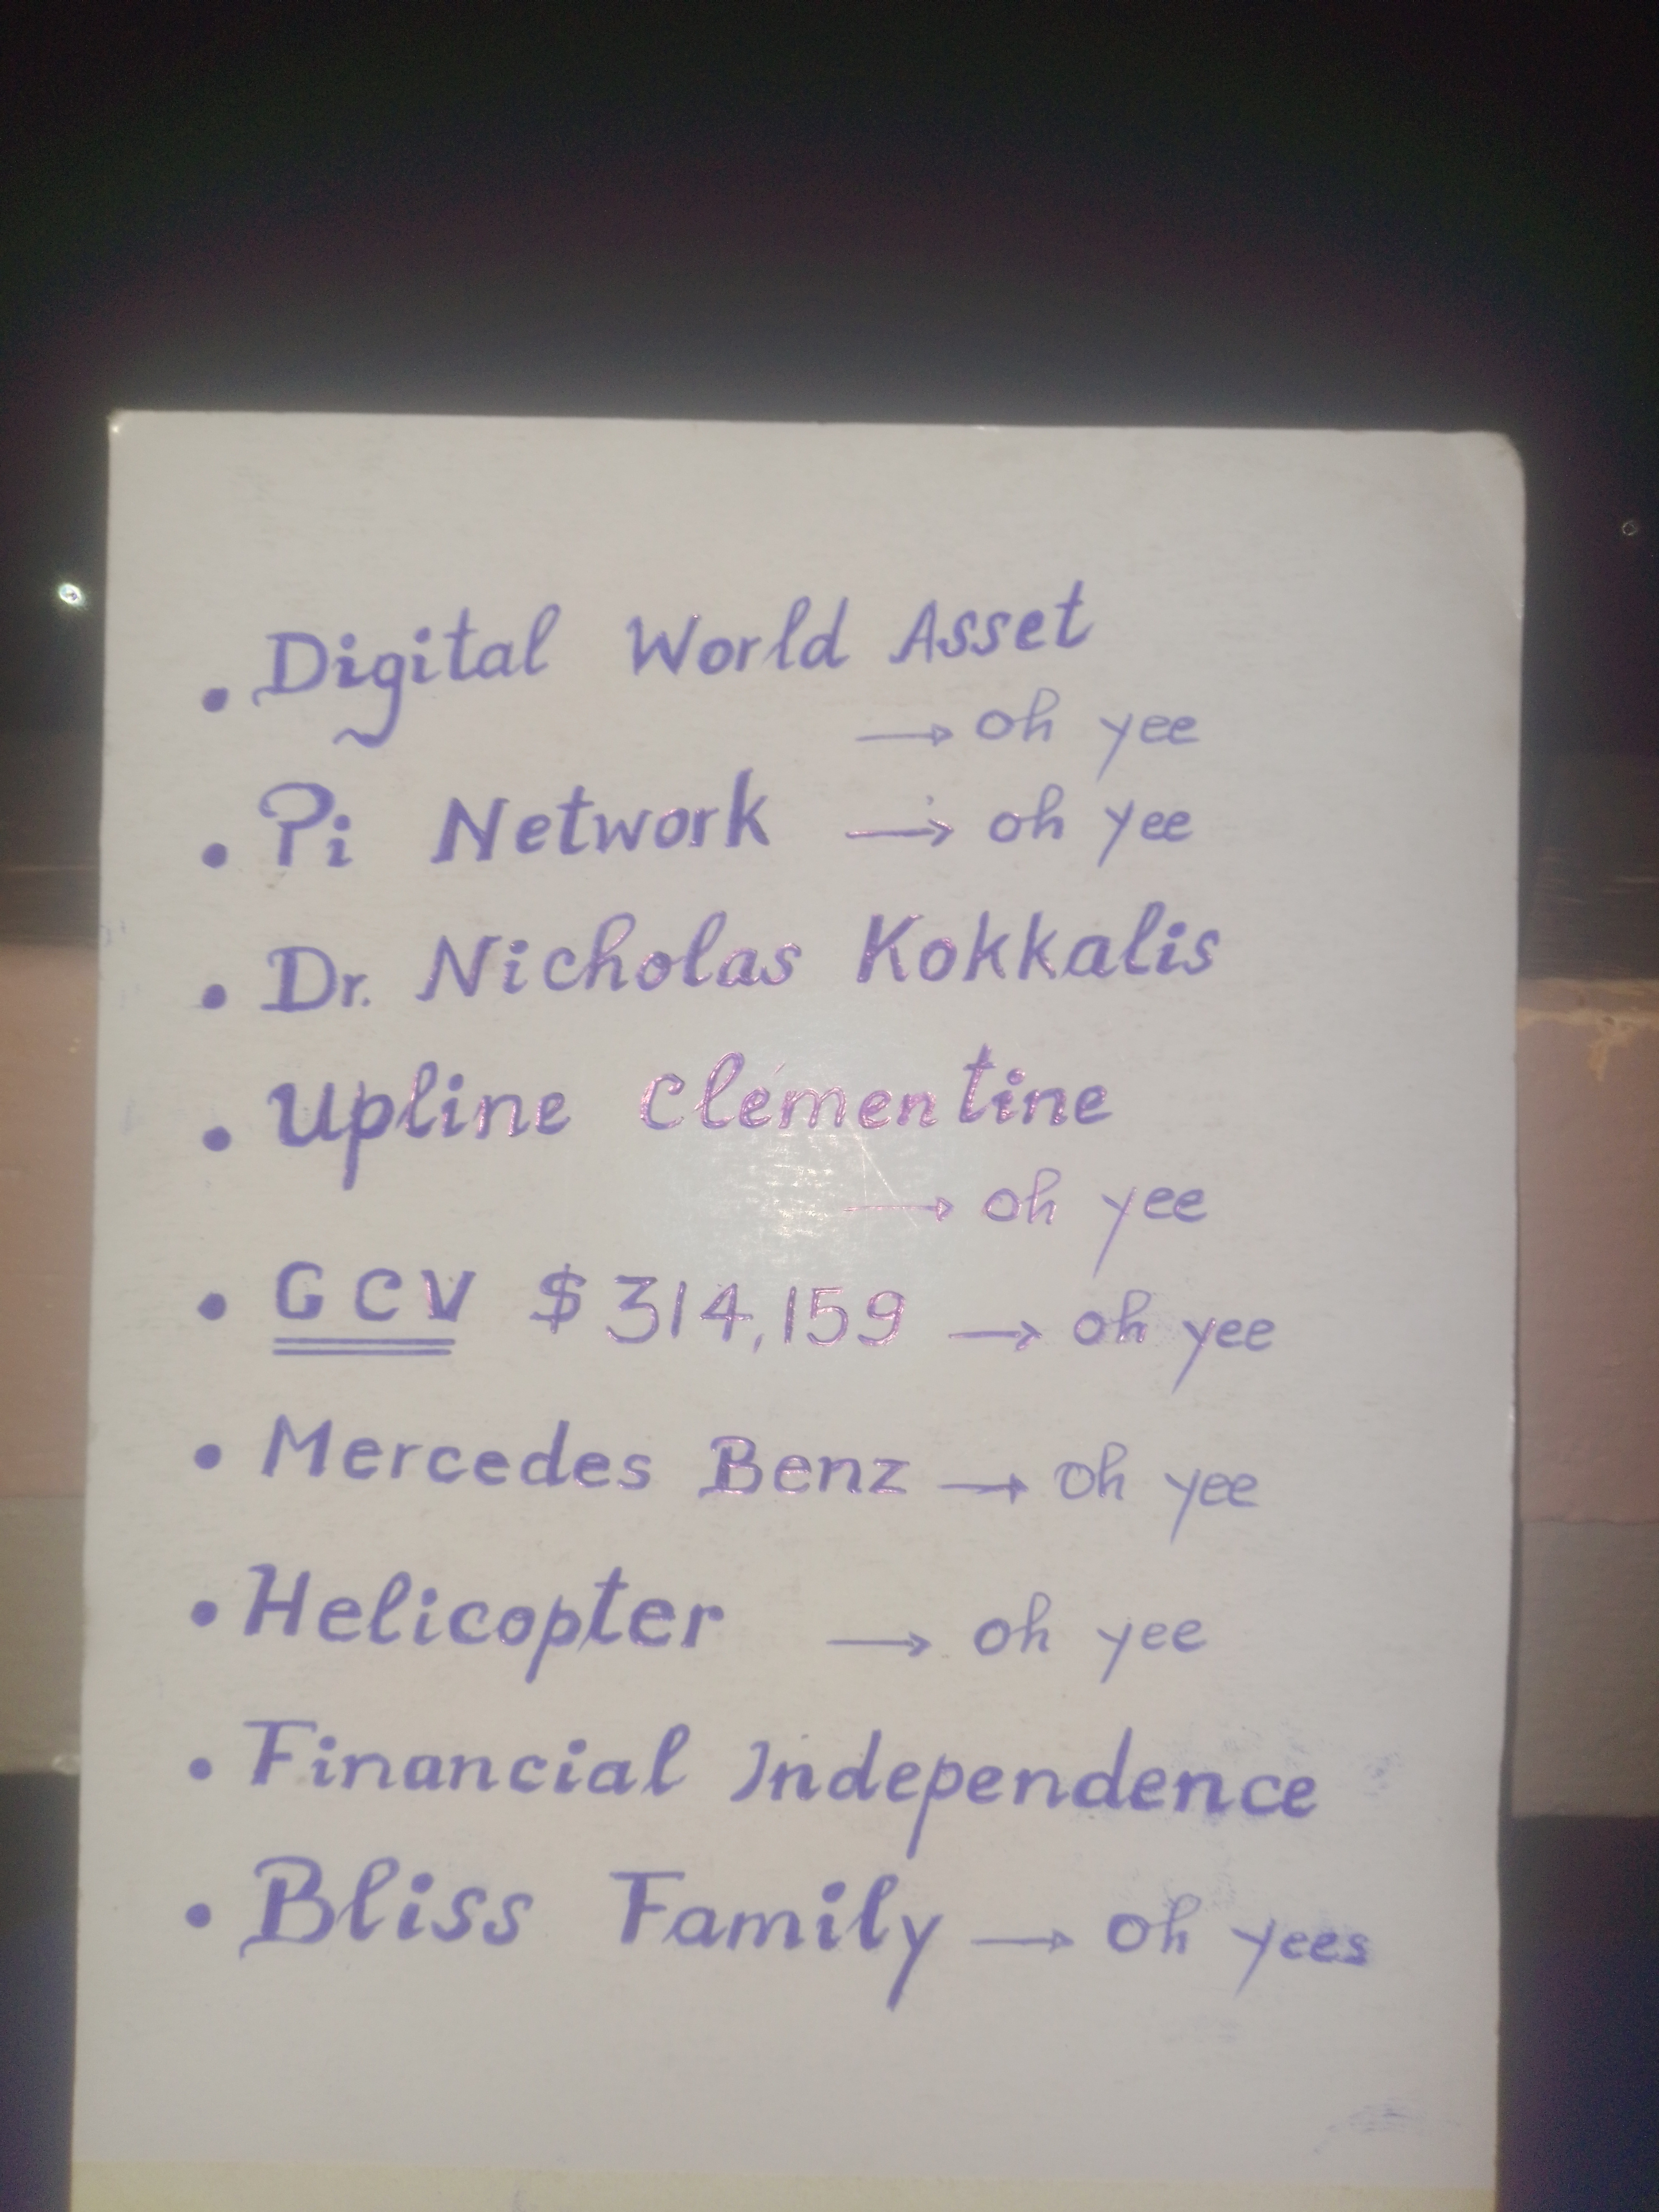 • Digital World Asset
→ oh yee
• Pi Network → oh yee
• Dr. Nicholas Kokkalis
• Upline Clementine
→ oh yee
• GCV $314,159 → oh yee
• Mercedes Benz → oh yee
• Helicopter → oh yee
• Financial Independence
• Bliss Family → oh yees